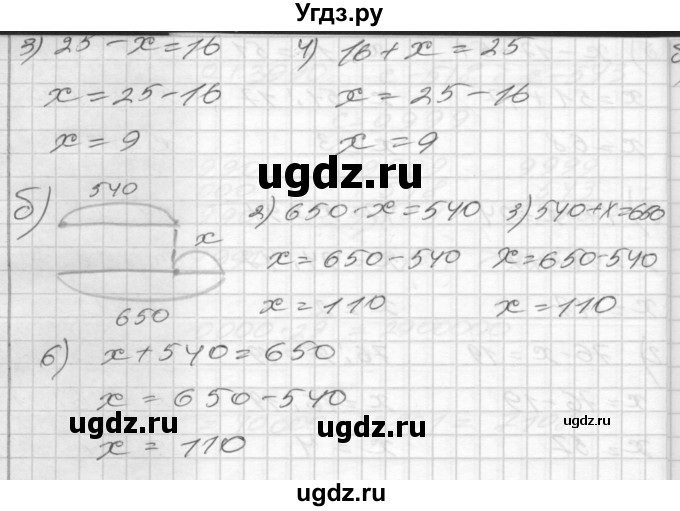 Угдз.ру
3) 25 - x = 16
4) 16 + x = 25
x = 25 - 16
x = 25 - 16
x = 9
x = 9
ugdz.ru
б)
540
x
650
2) 650 - x = 540
3) 540 + x = 650
x = 650 - 540
x = 650 - 540
x = 110
x = 110
ugdz.ru
6) x + 540 = 650
x = 650 - 540
ugdz.ru
ugdz.ru
x = 110
ugdz.ru